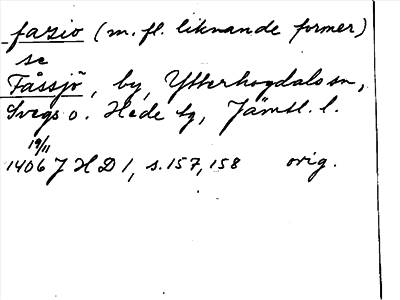 fasio (m. fl. liknande former)
se
Fåssjö, by, Ytterhogdals sn,
Svegs o. Hede tg, Jämtl. l.
19/11
1406 J H D 1, s. 157, 158 orig.